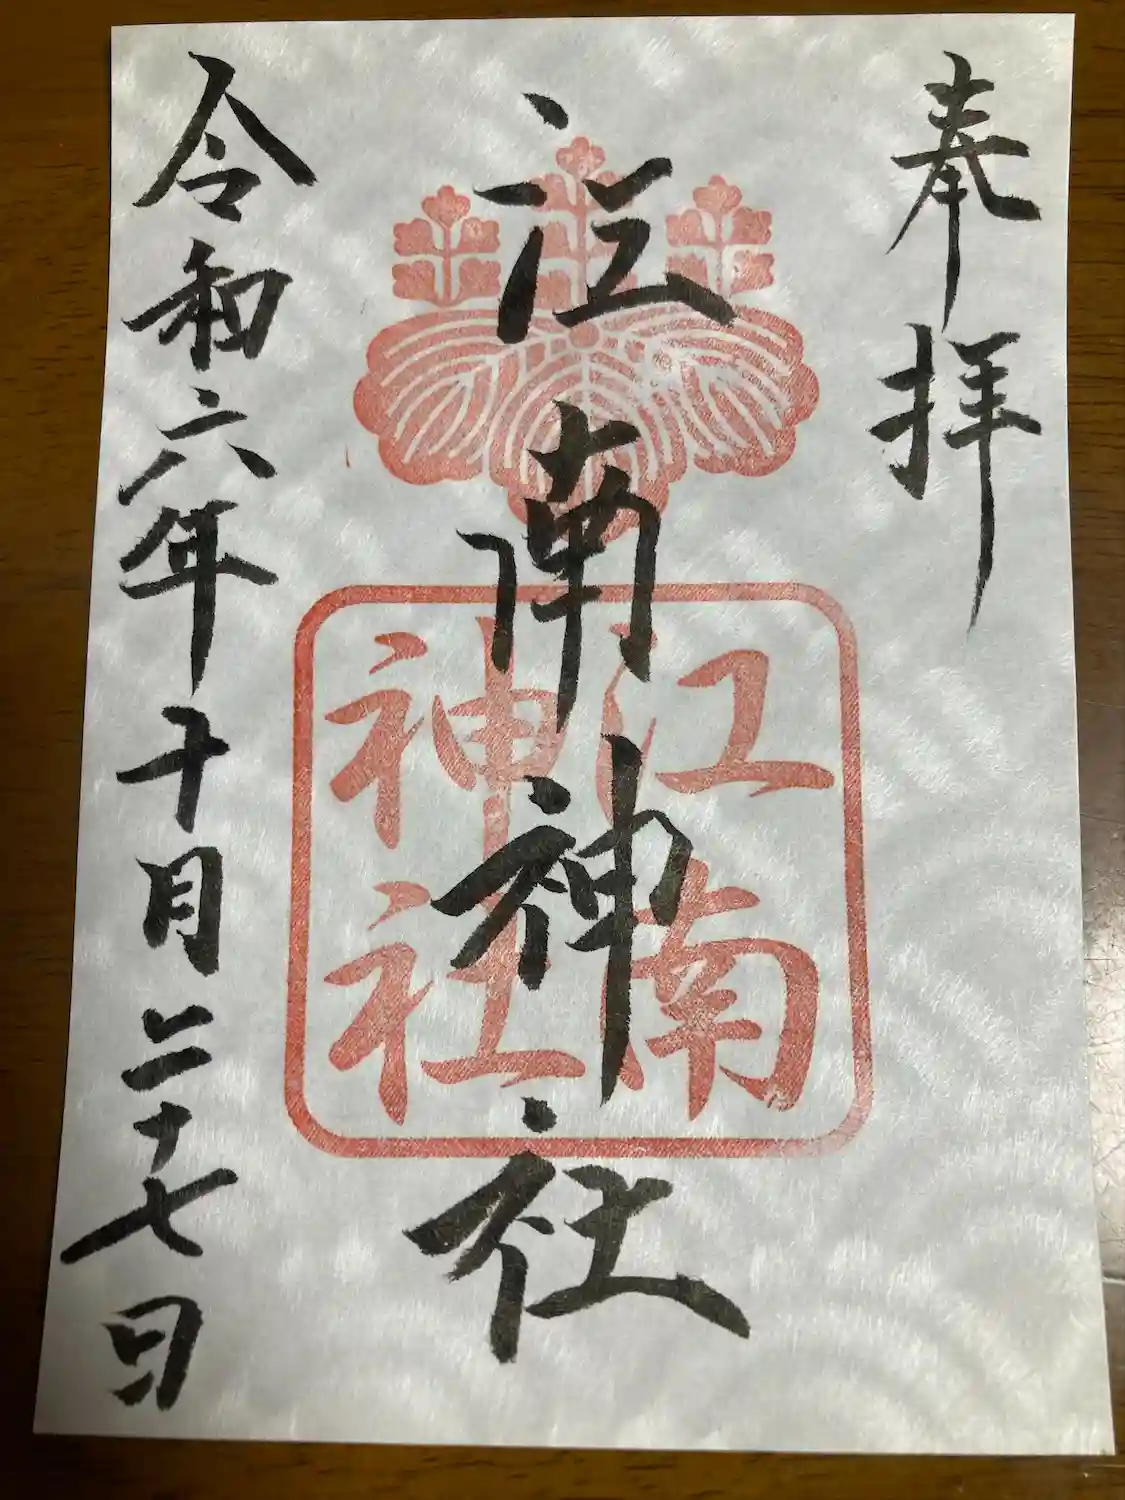 奉拝
江南神社
江南
神社
令和六年十月二十七日